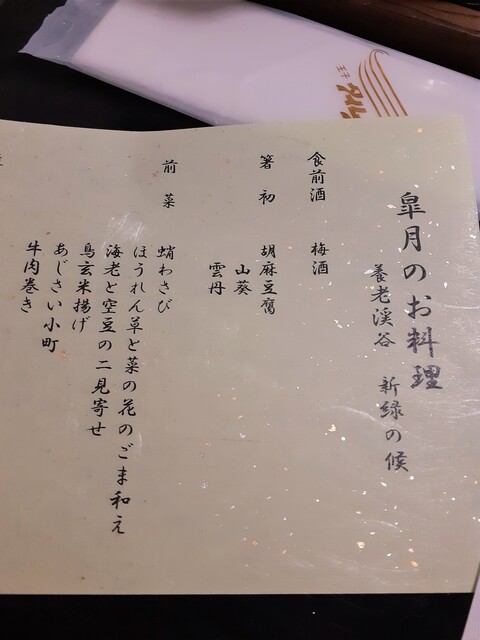 皐月のお料理
養老渓谷 新緑の候
食前酒 梅酒
箸初 胡麻豆腐
山葵
雲丹
前菜 蛸わさび
ほうれん草と菜の花のごま和え
海老と空豆の二見寄せ
鳥玄米揚げ
あじさい小町
牛肉巻き